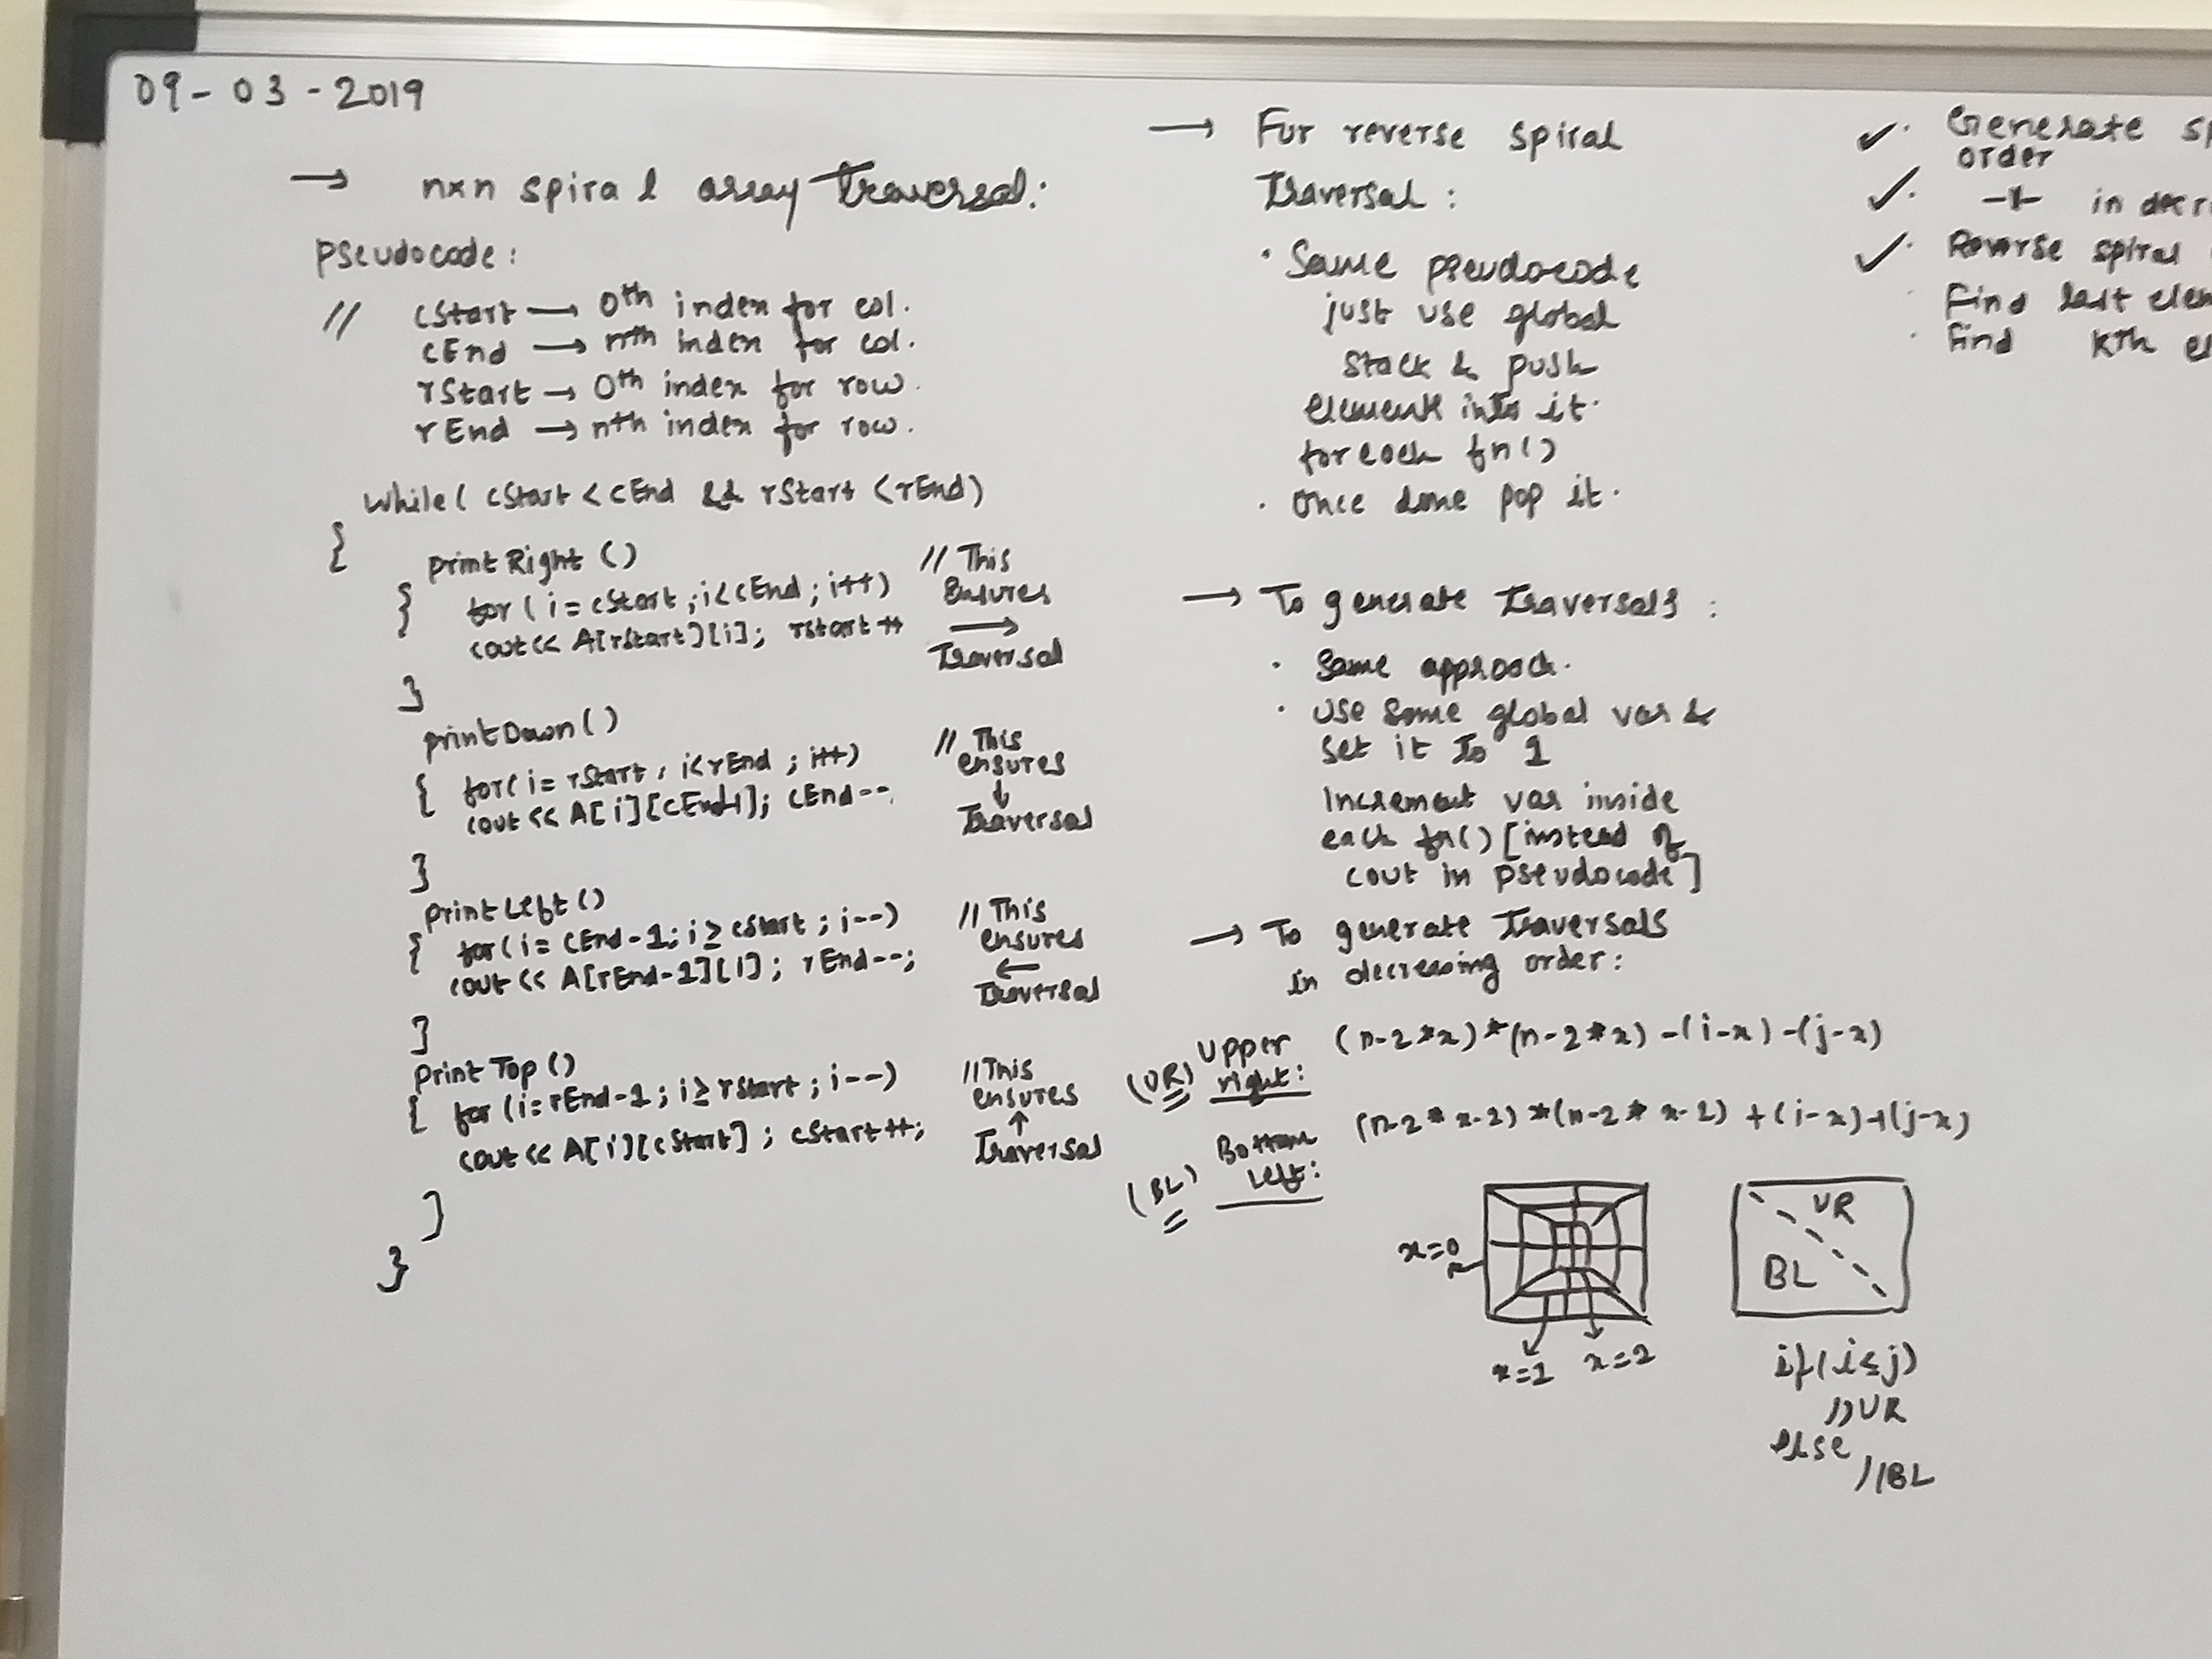 09-03-2019
→ nxn spiral array Traversal:
Pseudocode:
// cStart → 0th index for col.
cEnd → nth index for col.
rStart → 0th index for row.
rEnd → nth index for row.
While( cStart < cEnd && rStart < rEnd)
{
printRight ()
{ for ( i = cStart ; i < cEnd ; i++)
cout << A[rStart][i]; rStart++
}
// This
Ensures
→
Traversal
printDown()
{ for( i = rStart, i < rEnd ; i++)
cout << A[i][cEnd-1]; cEnd--,
}
// This
ensures
↓
Traversal
printLeft ()
{ for( i = cEnd-1; i ≥ cStart ; i--)
cout << A[rEnd-1][i]; rEnd--;
}
// This
ensures
←
Traversal
Print Top ()
{ for (i=rEnd-1; i ≥ rStart ; i--)
cout << A[i][cStart] ; cStart++;
}
// This
ensures
↑
Traversal
}
→ For reverse spiral
Traversal :
· Same pseudocode
just use global
Stack & push
element into it.
for each fn()
· Once done pop it.
→ To generate Traversals :
· Same approach.
· Use some global var &
set it to 1
Increment var inside
each fn() [instead of
cout in pseudocode]
→ To generate Traversals
in decreasing order:
(UR) Upper
right: (n-2*x)*(n-2*x)-(i-x)-(j-x)
(BL) Bottom
Left: (n-2*x-2)*(n-2*x-2)+(i-x)+(j-x)
x=0
x=1 x=2
UR
BL
if(i≤j)
//UR
else
//BL
✓· Generate sp
order
✓· in decr
✓· Reverse spiral
· Find last elem
· Find Kth el